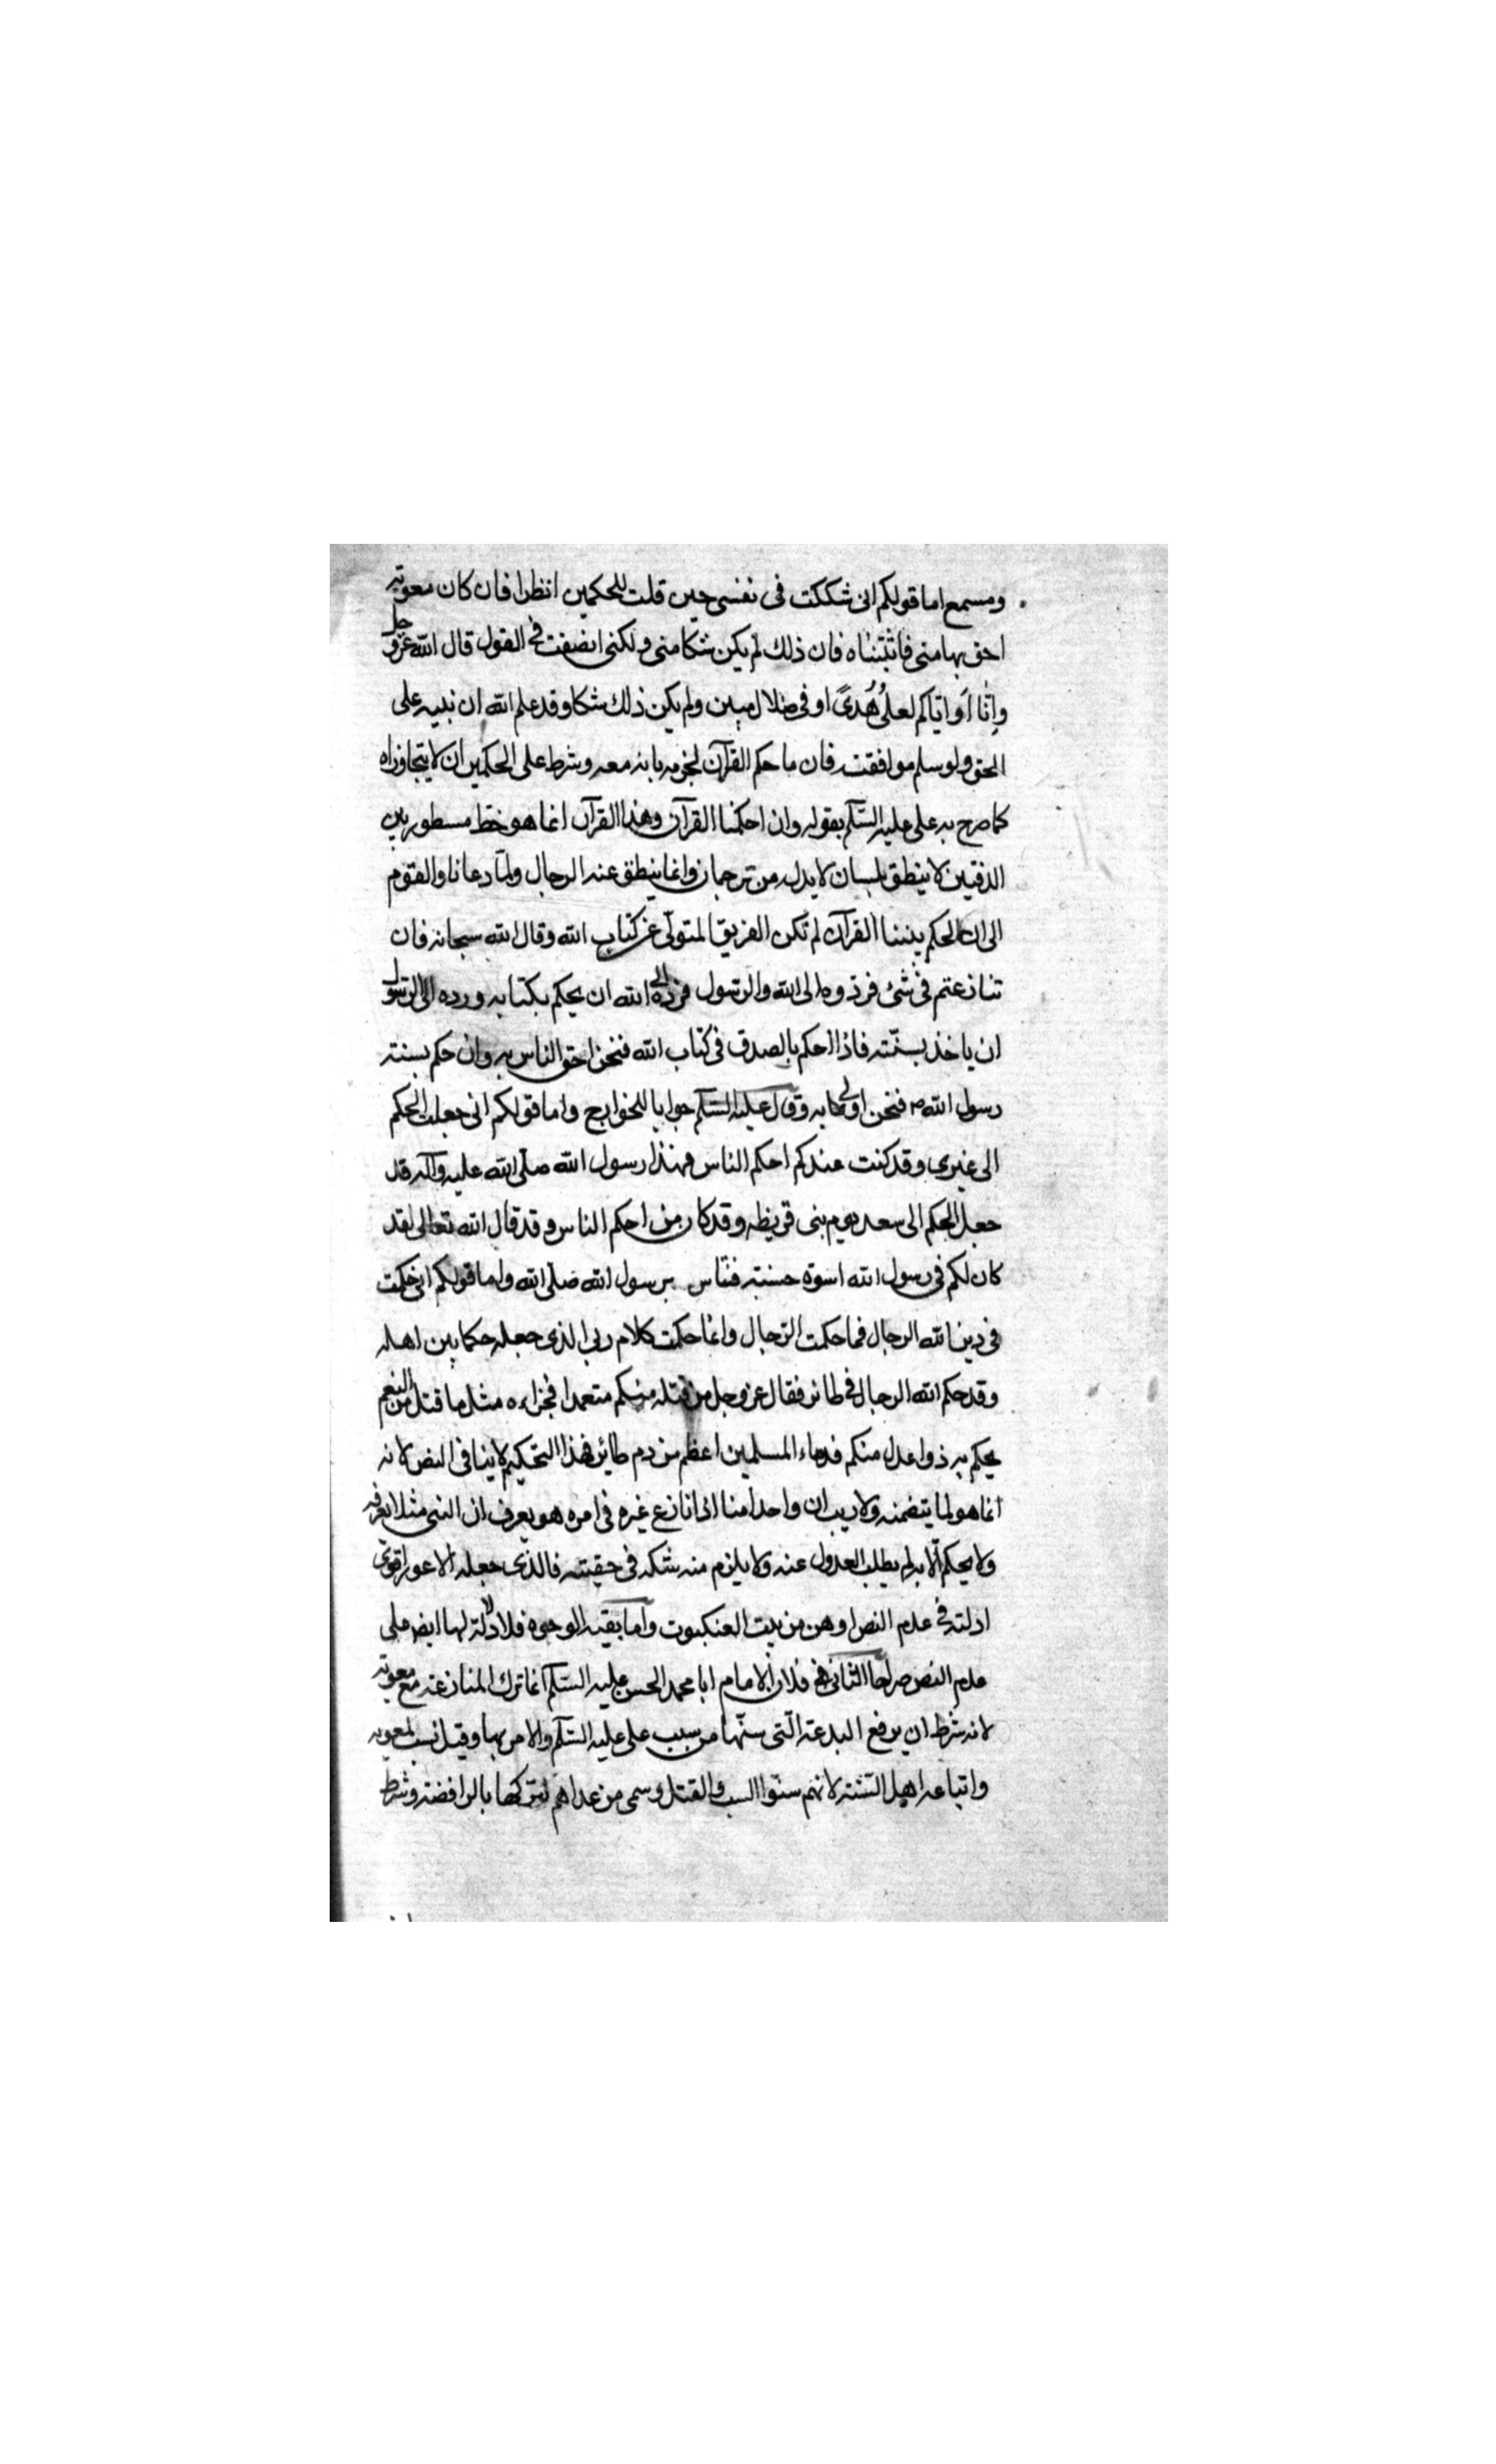 ومسمع اما قولكم انى شككت فى نفسى حين قلت للحكمين انظرا فان كان معوية
احق بها منى فاثبتناه فان ذلك لم يكن شكا منى ولكنى انصفت فى القول قال الله عز وجل
وانا او اياكم لعلى هدى او فى ضلال مبين ولم يكن ذلك شكا وقد علم الله ان نبيه على
الحق ولو سلم موافقته فان ما حكم القرآن لجزمه بانه معه وشرط على الحكمين ان لا يتجاوزاه
كما صرح به على عليه السلام بقوله وان احكمنا القرآن وهذا القرآن انما هو خط مسطور بين
الدفتين لا ينطق بلسان لا بد له من ترجمان وانما ينطق عنه الرجال ولما دعانا والقوم
الى ان الحكم بيننا القرآن لم تكن الفريق المتولى عن كتاب الله وقال الله سبحانه فان
تنازعتم فى شئ فردوه الى الله والرسول فرده الى الله ان يحكم بكتابه ورده الى الرسول
ان ياخذ بسنته فاذا احكم بالصدق فى كتاب الله فنحن احق الناس به وان حكم بسنته
رسول الله ص فنحن اولى به وقال عليه السلام جوابا للخوارج واما قولكم انى جعلت الحكم
الى غيرى وقد كنت عندكم احكم الناس فهذا رسول الله صلى الله عليه وآله قد
جعل الحكم الى سعد يوم بنى قريظه وقد كان من احكم الناس وقد قال الله تعالى لقد
كان لكم فى رسول الله اسوة حسنة فتاس برسول الله صلى الله واما قولكم انى حكمت
فى دين الله الرجال فما حكمت الرجال وانما حكمت كلام ربى الذى جعله حكما بين اهله
وقد حكم الله الرجال فى طائر فقال عز وجل من قتله منكم متعمدا فجزاءه مثل ما قتل من النعم
يحكم به ذوا عدل منكم فدماء المسلمين اعظم من دم طائر فهذا التحكيم لا ينافى النص لانه
انما هو لما يتضمنه ولا ريب ان واحدا منا اذا نازع غيره فى امره هو يعرف ان النبى مثلا يعرفه
ولا يحكم الا به لم يطلب العدول عنه ولا يلزم منه شكه فى حقيته فالذى جعله الاعور اقوى
ادلته فى عدم النص اوهن من بيت العنكبوت واما بقيه الوجوه فلا دلالة لها ايض على
عدم النص صراحا الثانى فلان الامام ابا محمد الحسن عليه السلام انما ترك المنازعة مع معوية
لانه شرط ان يرفع البدعة التى سنها من سبب على عليه السلام والامر بها وقيل نسب لمعويه
واتباعه اهل السنة لانهم سنوا السب والقتل وسمى من عداهم لتركها بالرافضة وشرط